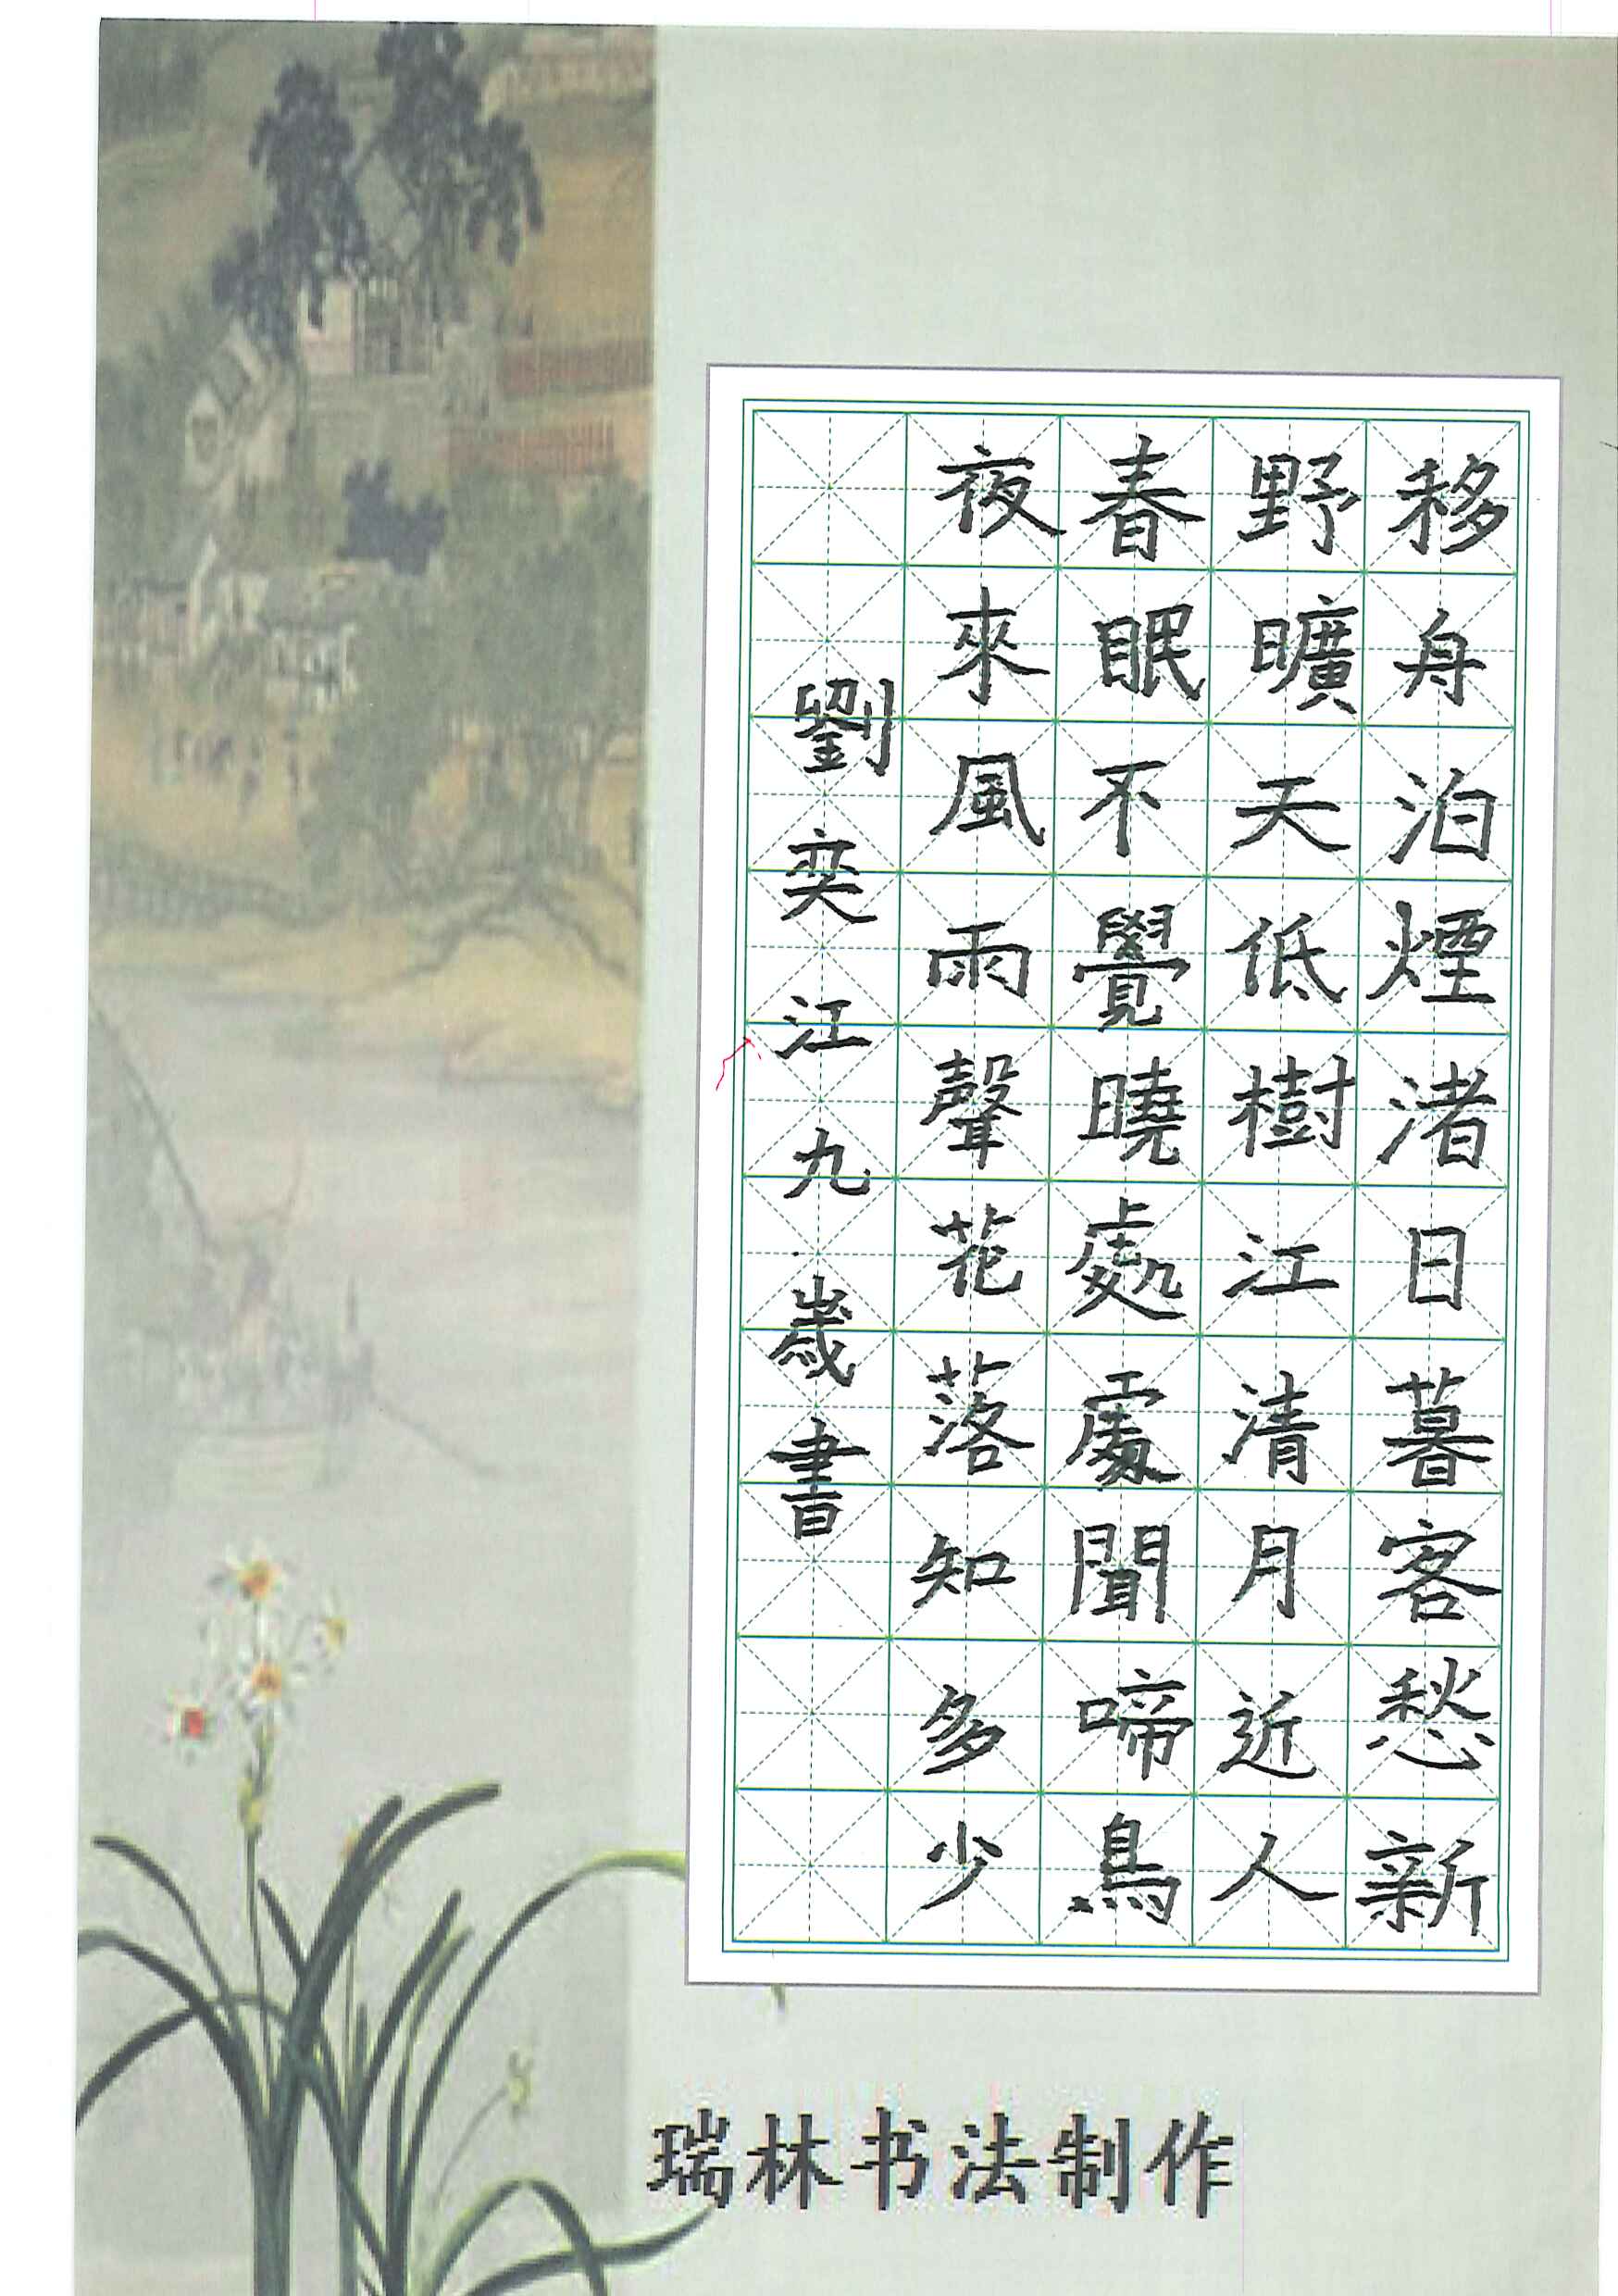 移舟泊煙渚日暮客愁新
野曠天低樹江清月近人
春眠不覺曉處處聞啼鳥
夜來風雨聲花落知多少
劉奕江九歲書
瑞林书法制作